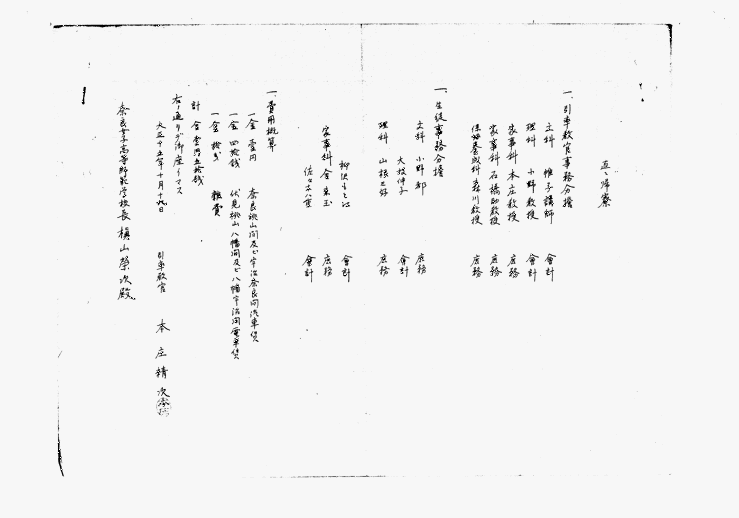 直ニ帰寮
一、引率教官事務分擔
文科 惟子講師 會計
理科 小野教授 會計
家事科 本庄教授 庶務
家事科 石橋助教授 庶務
保姆養成科 森川教授 庶務
一、生徒事務分擔
文科 小野郁 庶務
大枝伸子 會計
理科 山根 庶務
柳沢 會計
家事科 金 玉 庶務
佐々木八重 會計
一、費用概算
一金 壹円 奈良桃山間及ビ宇治奈良間汽車賃
一金 四拾銭 伏見桃山八幡間及ビ八幡宇治間電車賃
一金 拾銭 雑費
計 金壹円五拾銭
右ノ通リデ御座イマス
大正十五年十月十九日
引率教官 本庄精次
奈良女子高等師範学校長 槇山榮次殿